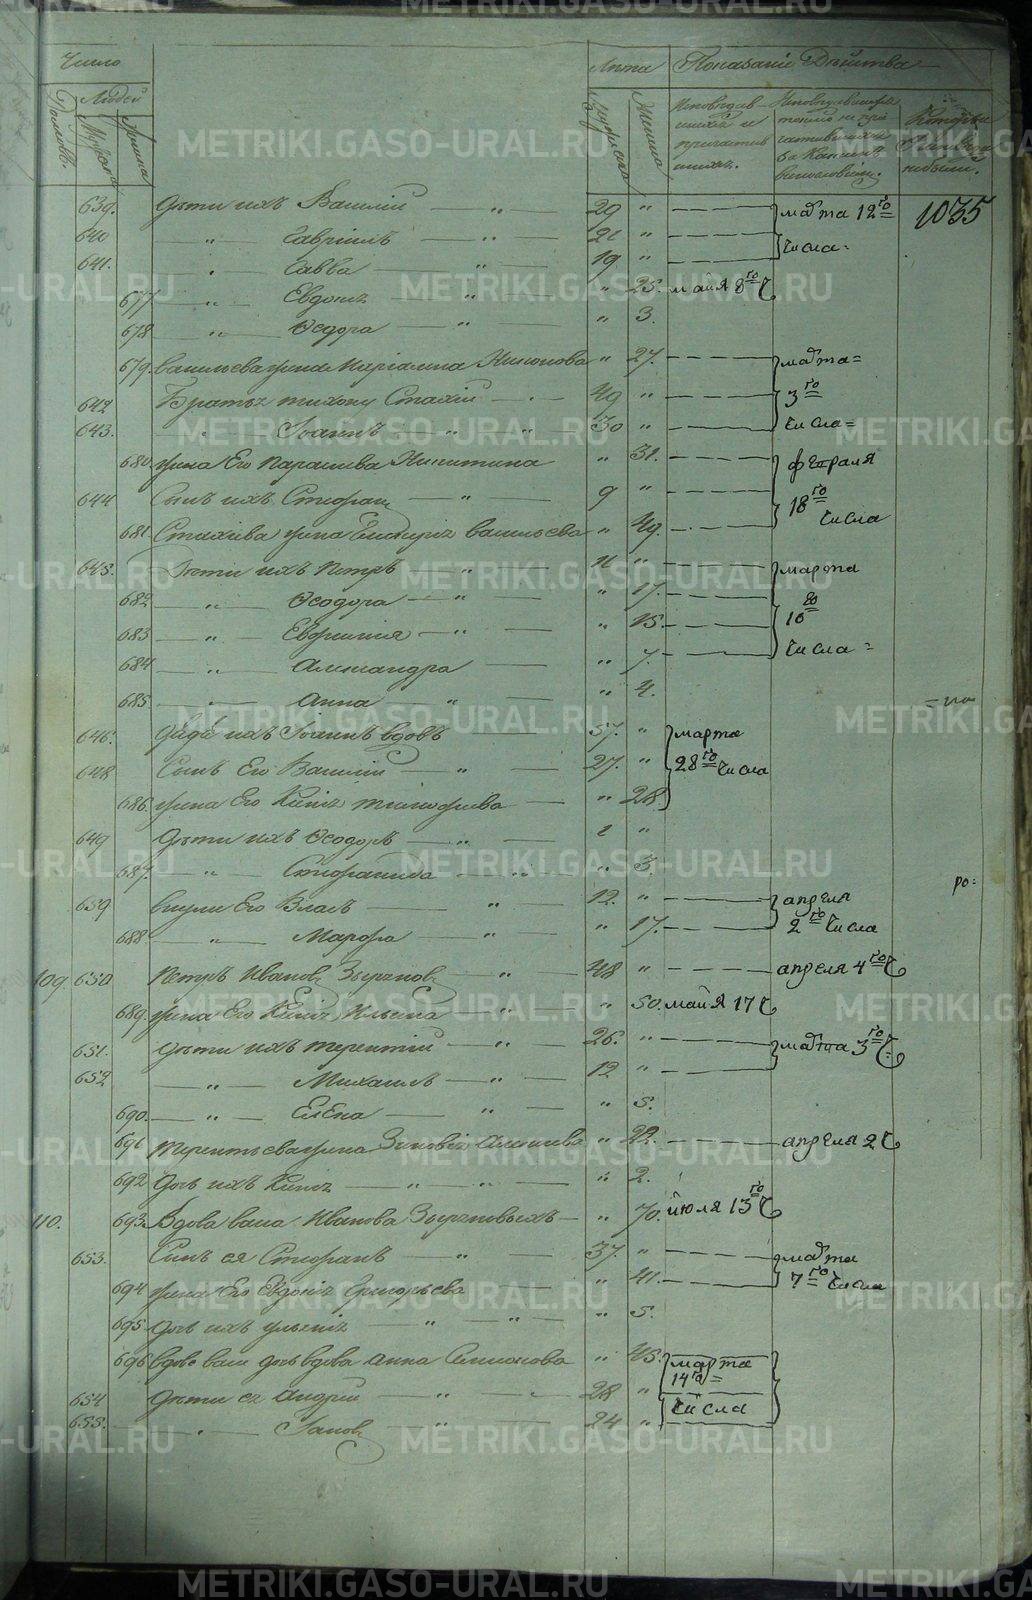 Число
Людей
Лѣта
Показаніе Дѣйства
Домовъ.
Мужска
Женска
Мужска
Женска
1035
639. Дѣти ихъ Василій " 29 " марта 12го
640 " Гавріилъ " 21 " числа =
641. " Савва " 19 "
677 " Евдокія " " 25. майя 8го Ч
678 " Ѳедора " " 3.
679. Васильева жена Маріамна Никонова " 27. марта =
642 Братъ Тихону Стахій " 49 " 3го
643. " Іоаннъ " " 30 " числа =
680. жена Его Параскева Никитина " 31. февраля
644 Сынъ ихъ Стефан " 9 " 18го
681 Стахіева жена Гликерія Васильева " 49. числа
645. Дѣти ихъ Петръ " 11 " марта
682 " Ѳеодора " " 17. 10го
683 " Евфимія " " 15. числа =
684 " Александра " 7.
685 " Анна " " 4.
646. Дядя ихъ Іоаннъ вдовъ 57. " марта
648 Сынъ Его Василій " 27. " 28го числа
686. жена Его Ксенія Тимофѣева " 28.
649 Дѣти ихъ Ѳеодоръ " 1 "
687. " Стефанида " " 3.
659 внуки Его Власъ " 12. " апреля
688 " Марфа " " 17. 2го числа
ро=
109. 650 Петръ Иванов Зырянов " 48 " апреля 4го Ч
689. жена Его Ксенія Ильина " " 50. майя 17 Ч
651. Дѣти ихъ Терентій " 26. " марта 3го Ч
652 " Михаилъ " 12 "
690. " Елена " " 5.
691 Терентьева жена Зиновія Алексѣева " 22. апреля 2 Ч
692 Дочь ихъ Ксенія " " " 2.
110. 693. Вдова Васса Иванова Зыряновыхъ " 70. июля 13го Ч
653. Сынъ ея Стефанъ " 37. " марта
694 жена Его Евдокія Григорьева " 41. 7го числа
695 Дочь ихъ Ульянія " " " 5.
696 Вдовы Вассы дочь вдова Анна Симонова " 45. марта 14го =
654 Дѣти ея Андрей " 28 " числа
655. " Іаков " 24 "
METRIKI.GASO-URAL.RU